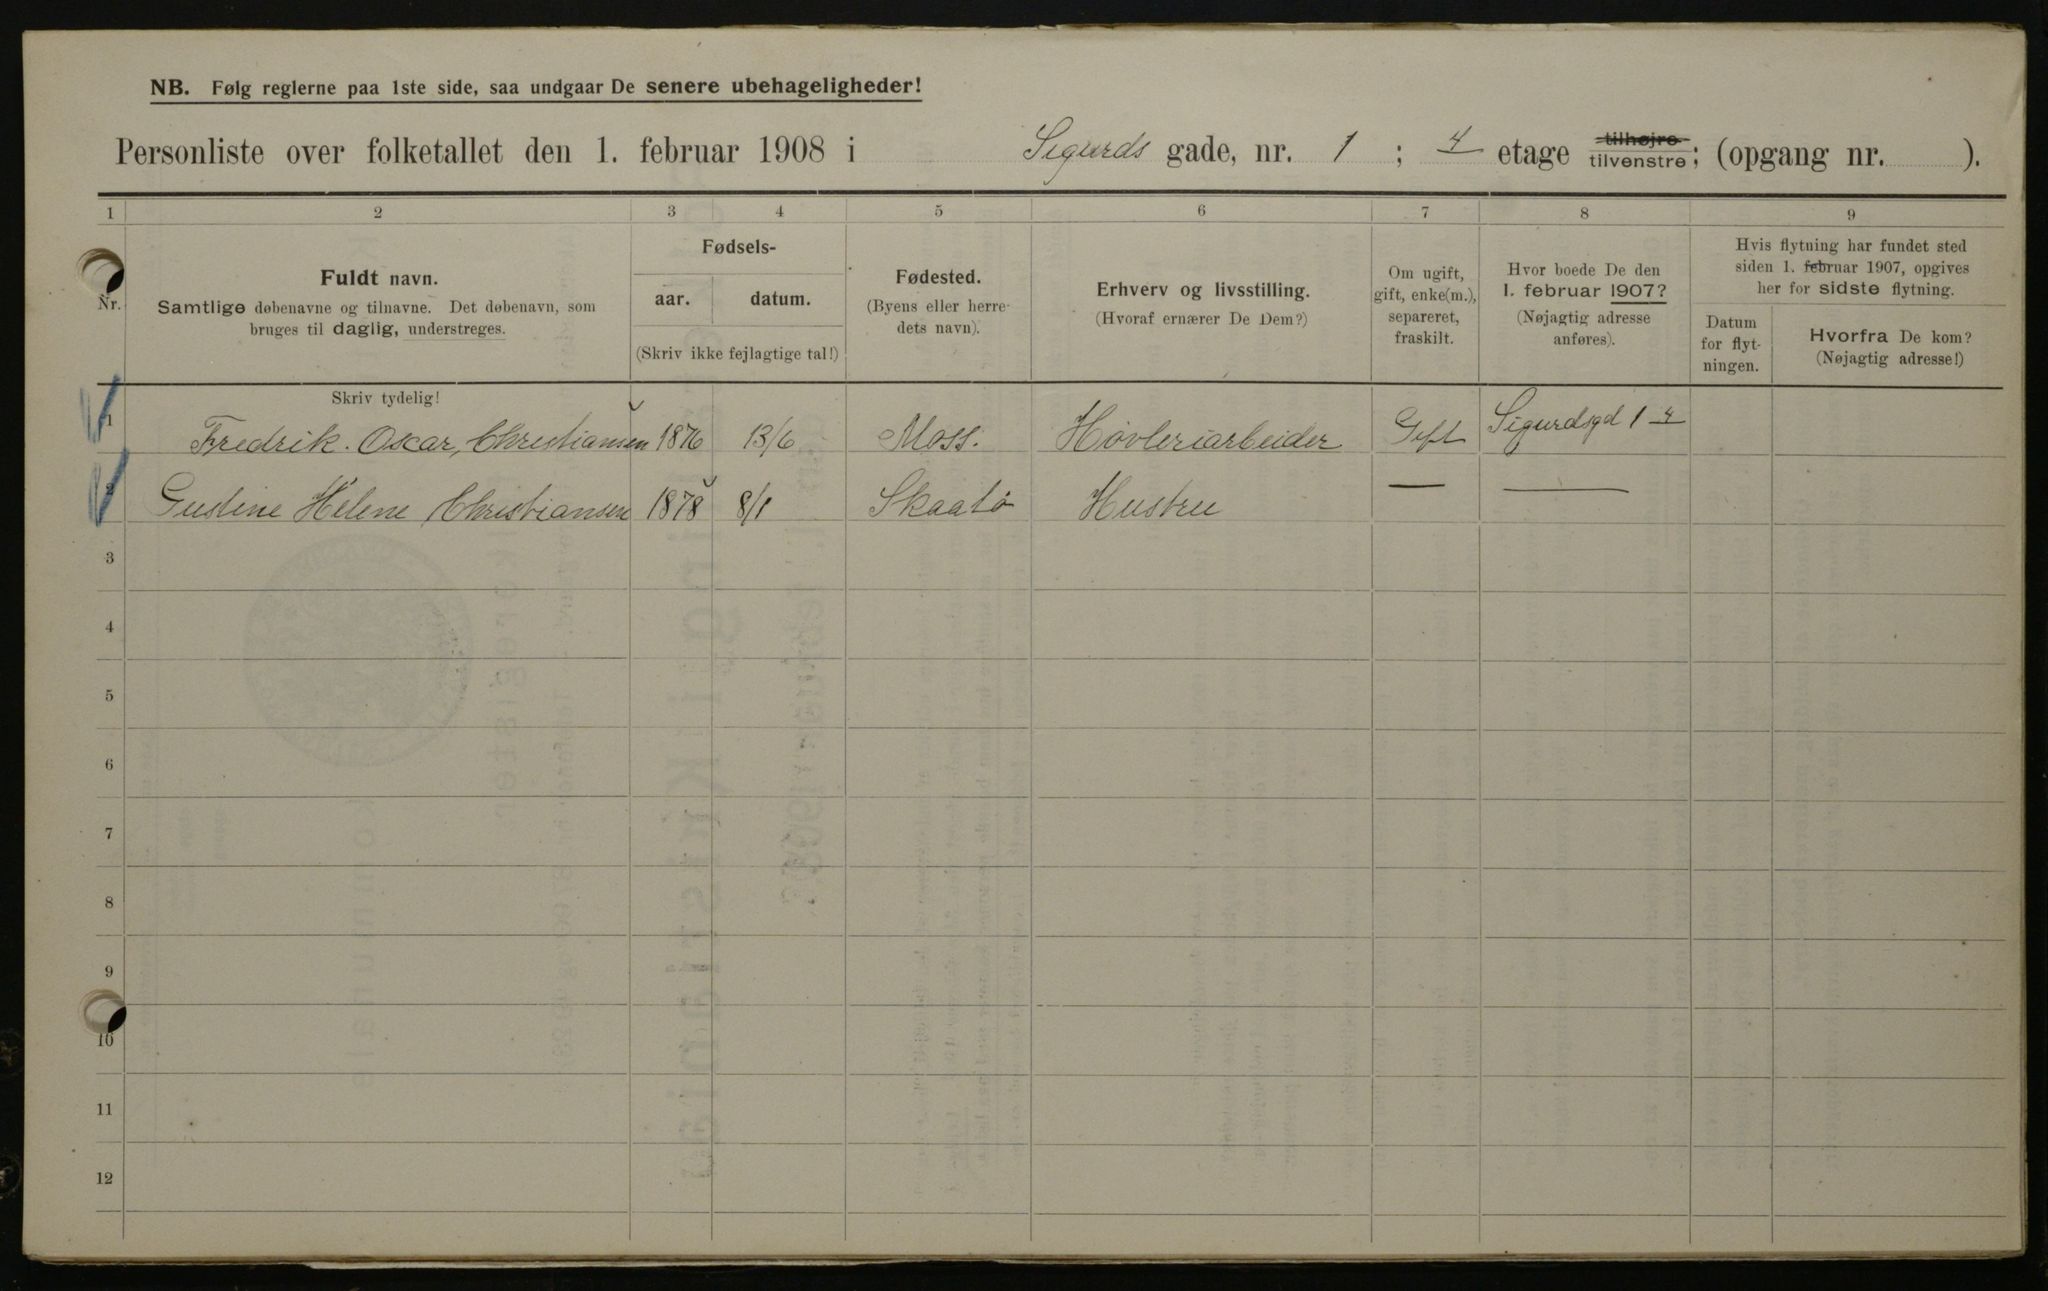 NB. Følg reglerne paa 1ste side, saa undgaar De senere ubehageligheder!
Personliste over folketallet den 1. februar 1908 i Sigurds gade, nr. 1 ; 4 etage tilhøjre tilvenstre; (opgang nr. ).
1 2 3 4 5 6 7 8 9
Nr.
Fuldt navn.
Samtlige døbenavne og tilnavne. Det døbenavn, som
bruges til daglig, understreges.
Fødsels-
aar. datum.
(Skriv ikke fejlagtige tal!)
Fødested.
(Byens eller herre-
dets navn).
Erhverv og livsstilling.
(Hvoraf ernærer De Dem?)
Om ugift,
gift, enke(m.),
separeret,
fraskilt.
Hvor boede De den
1. februar 1907?
(Nøjagtig adresse
anføres).
Hvis flytning har fundet sted
siden 1. februar 1907, opgives
her for sidste flytning.
Datum
for flyt-
ningen.
Hvorfra De kom?
(Nøjagtig adresse!)
Skriv tydelig!
1 Fredrik. Oscar, Christiansen 1876 13/6 Moss. Høvleriarbeider Gift Sigurdsgd 1 4
2 Gustine Helene Christiansen 1878 8/1 Skaatø Hustru — —
3
4
5
6
7
8
9
10
11
12